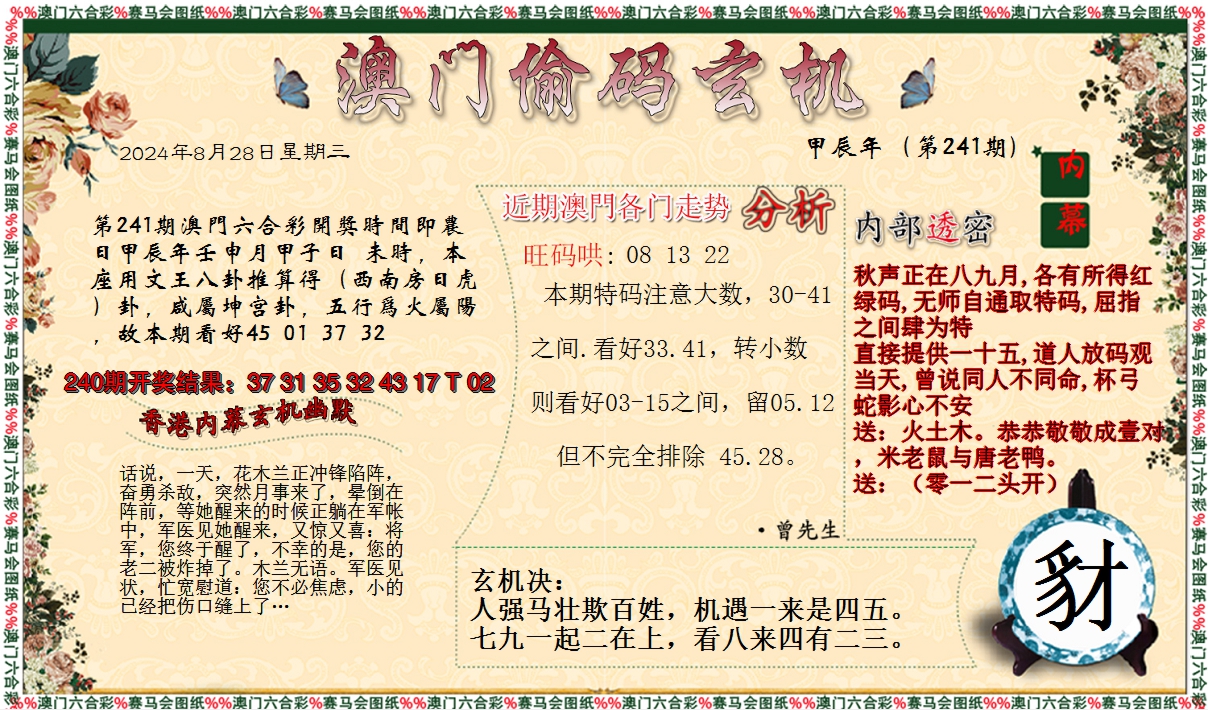 %%澳门六合彩%赛马会图纸%%澳门六合彩%赛马会图纸%%澳门六合彩%赛马会图纸%%澳门六合彩%赛马会图纸%%澳门六合彩%赛马会图纸%%澳门六合彩%赛马会图纸%%澳门六合彩%赛马会图纸%%
澳门偷码玄机
2024年8月28日星期三
甲辰年（第241期）
第241期澳門六合彩開獎時間即農
日甲辰年壬申月甲子日 未時，本
座用文王八卦推算得（西南房日虎
）卦，咸屬坤宫卦，五行爲火屬陽
，故本期看好45 01 37 32
240期开奖结果：37 31 35 32 43 17 T 02
香港内幕玄机幽默
话说，一天，花木兰正冲锋陷阵，
奋勇杀敌，突然月事来了，晕倒在
阵前，等她醒来的时候正躺在军帐
中，军医见她醒来，又惊又喜：将
军，您终于醒了，不幸的是，您的
老二被炸掉了。木兰无语。军医见
状，忙宽慰道：您不必焦虑，小的
已经把伤口缝上了…
近期澳門各门走势 分析
旺码哄: 08 13 22
本期特码注意大数，30-41
之间.看好33.41，转小数
则看好03-15之间，留05.12
但不完全排除 45.28。
·曾先生
玄机决：
人强马壮欺百姓，机遇一来是四五。
七九一起二在上，看八来四有二三。
内幕
内部透密
秋声正在八九月,各有所得红
绿码,无师自通取特码,屈指
之间肆为特
直接提供一十五,道人放码观
当天,曾说同人不同命,杯弓
蛇影心不安
送：火土木。恭恭敬敬成壹对
，米老鼠与唐老鸭。
送：（零一二头开）
豺
%%澳门六合彩%赛马会图纸%%澳门六合彩%赛马会图纸%%澳门六合彩%赛马会图纸%%澳门六合彩%赛马会图纸%%澳门六合彩%赛马会图纸%%澳门六合彩%赛马会图纸%%澳门六合彩%赛马会图纸%%